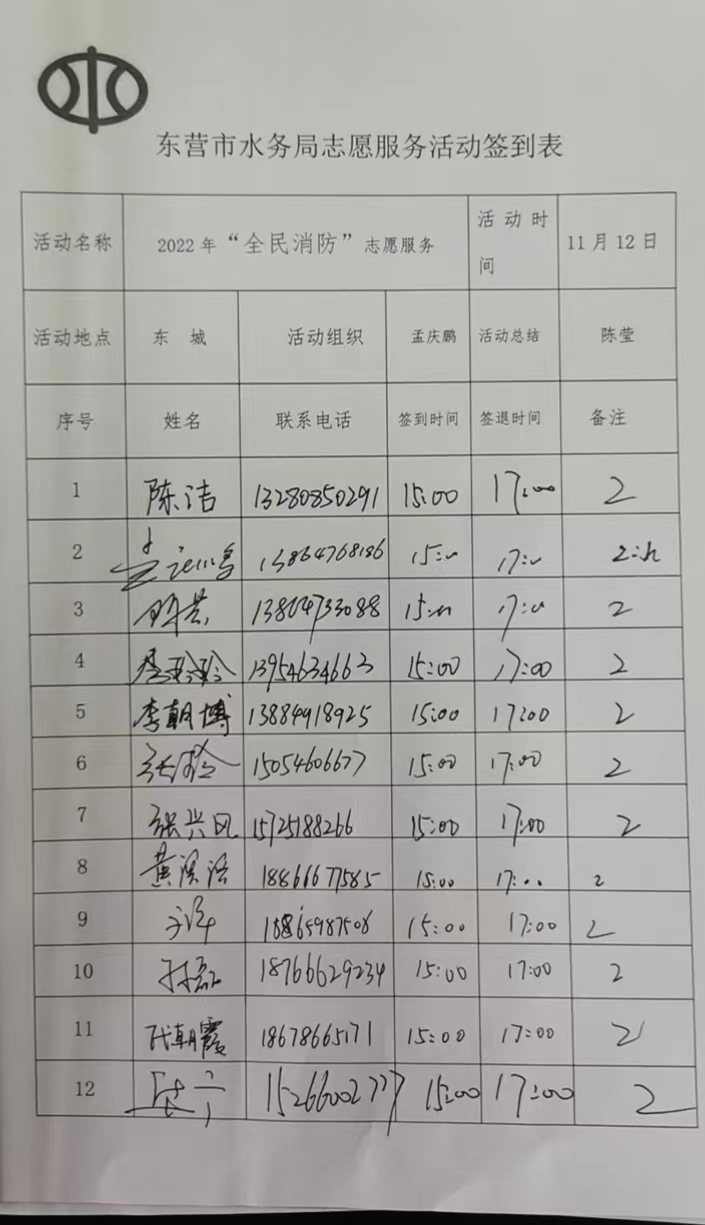 东营市水务局志愿服务活动签到表
活动名称 2022年“全民消防”志愿服务 活动时间 11月12日
活动地点 东城 活动组织 孟庆鹏 活动总结 陈莹
序号 姓名 联系电话 签到时间 签退时间 备注
1 陈洁 13280850291 15:00 17:00 2
2 13864768186 15: 17: 2
3 13804733088 15: 17: 2
4 李玲玲 13954634663 15:00 17:00 2
5 李朝博 13884918925 15:00 17:00 2
6 15054606677 15:00 17:00 2
7 张兴风 15725188266 15:00 17:00 2
8 18866677585 15:00 17: 2
9 15:00 17:00 2
10 孙磊 18766629234 15:00 17:00 2
11 代朝霞 18678665171 15:00 17:00 2
12 15266002777 15:00 17:00 2